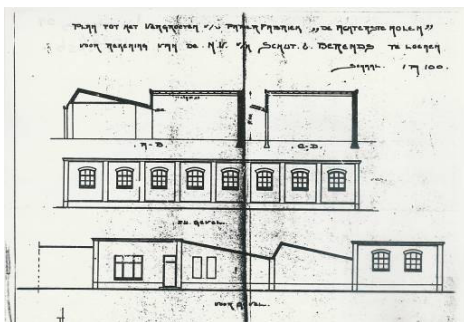 PLAN TOT HET VERGROOTEN V/D PAPIERFABRIEK „DE ACHTERSTE MOLEN”
VOOR REKENING VAN DE N.V. V/H SCHUT & BERENDS TE LOENEN
SCHAAL 1 à 100.
A-B. C-D.
GEVEL.
VOOR GEVEL.